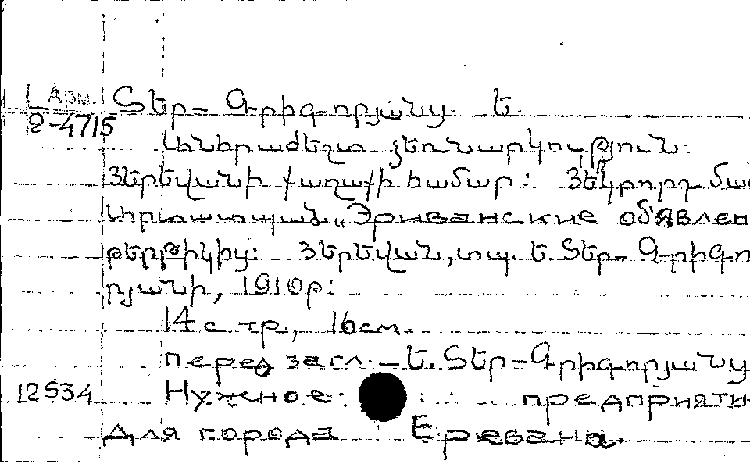 Арм.
2-4715
Տեր- Գրիգորյանց Ե.
Անհրաժեշտ ձեռնարկություն
Յերեվանի քաղաքի համար: Յեկրորդ
Արտատպ. „Эриванские объявлен
թերթիկից: Յերեվան, տպ. Ե. Տեր- Գրիգո
րյանի, 1910թ:
14 стр, 16см.
перед загл. - Ե. Տեր-Գրիգորյանց
12534 Нужное предприяти
для города Еревана.